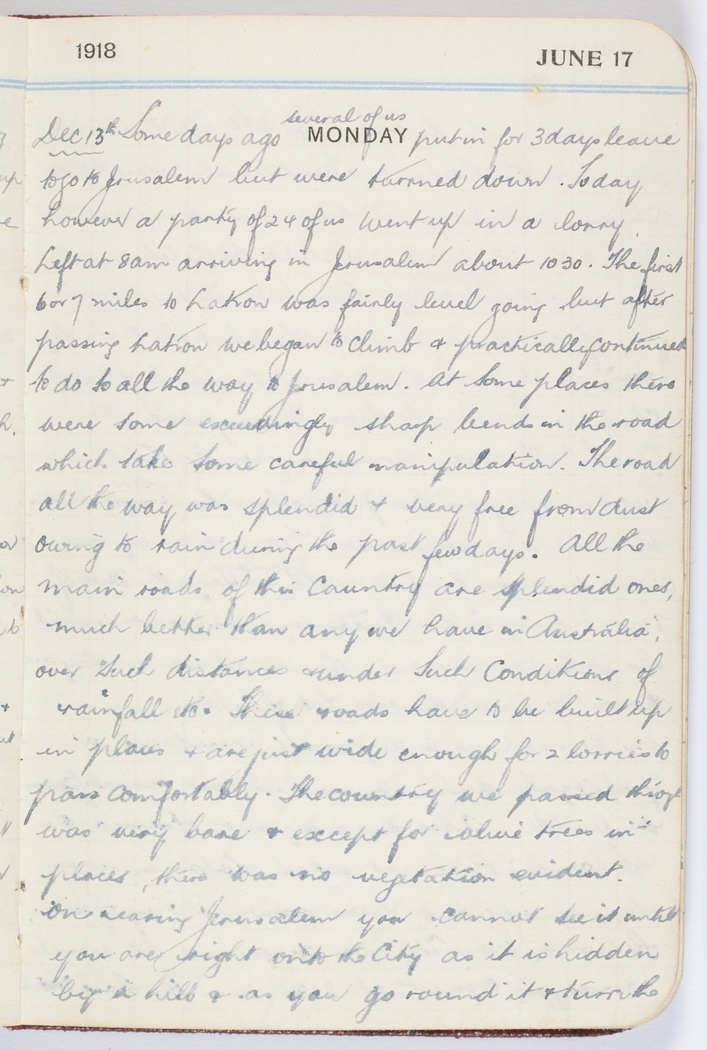 1918 JUNE 17
several of us
Dec 13th Some days ago MONDAY put in for 3 days leave
to go to Jerusalem but were turned down. Today
however a party of 24 of us went up in a lorry.
Left at 8am arriving in Jerusalem about 1030. The first
6 or 7 miles to Latron was fairly level going but after
passing Latron we began to climb & practically continued
to do so all the way to Jerusalem. At some places there
were some exceedingly sharp bends in the road
which take some careful manipulation. The road
all the way was splendid & very free from dust
owing to rain during the past few days. All the
main roads of this Country are splendid ones,
much better than any we have in Australia,
over such distances & under such Conditions of
rainfall etc. These roads have to be built up
in places & are just wide enough for 2 lorries to
pass comfortably. The country we passed thro
was very bare & except for olive trees in
places, there was no vegetation evident.
On nearing Jerusalem you cannot see it until
you are right onto the City as it is hidden
by a hill & as you go round it & turn the